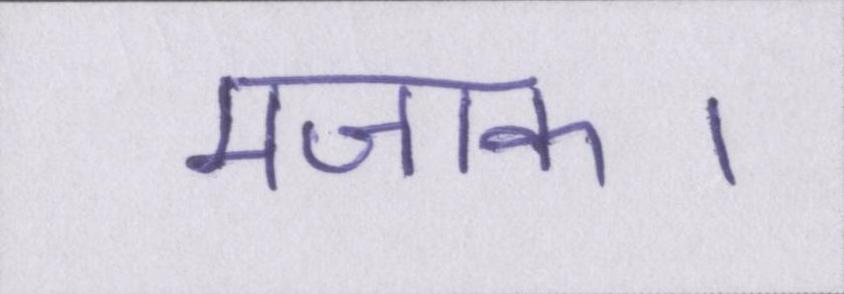 मजाक ।